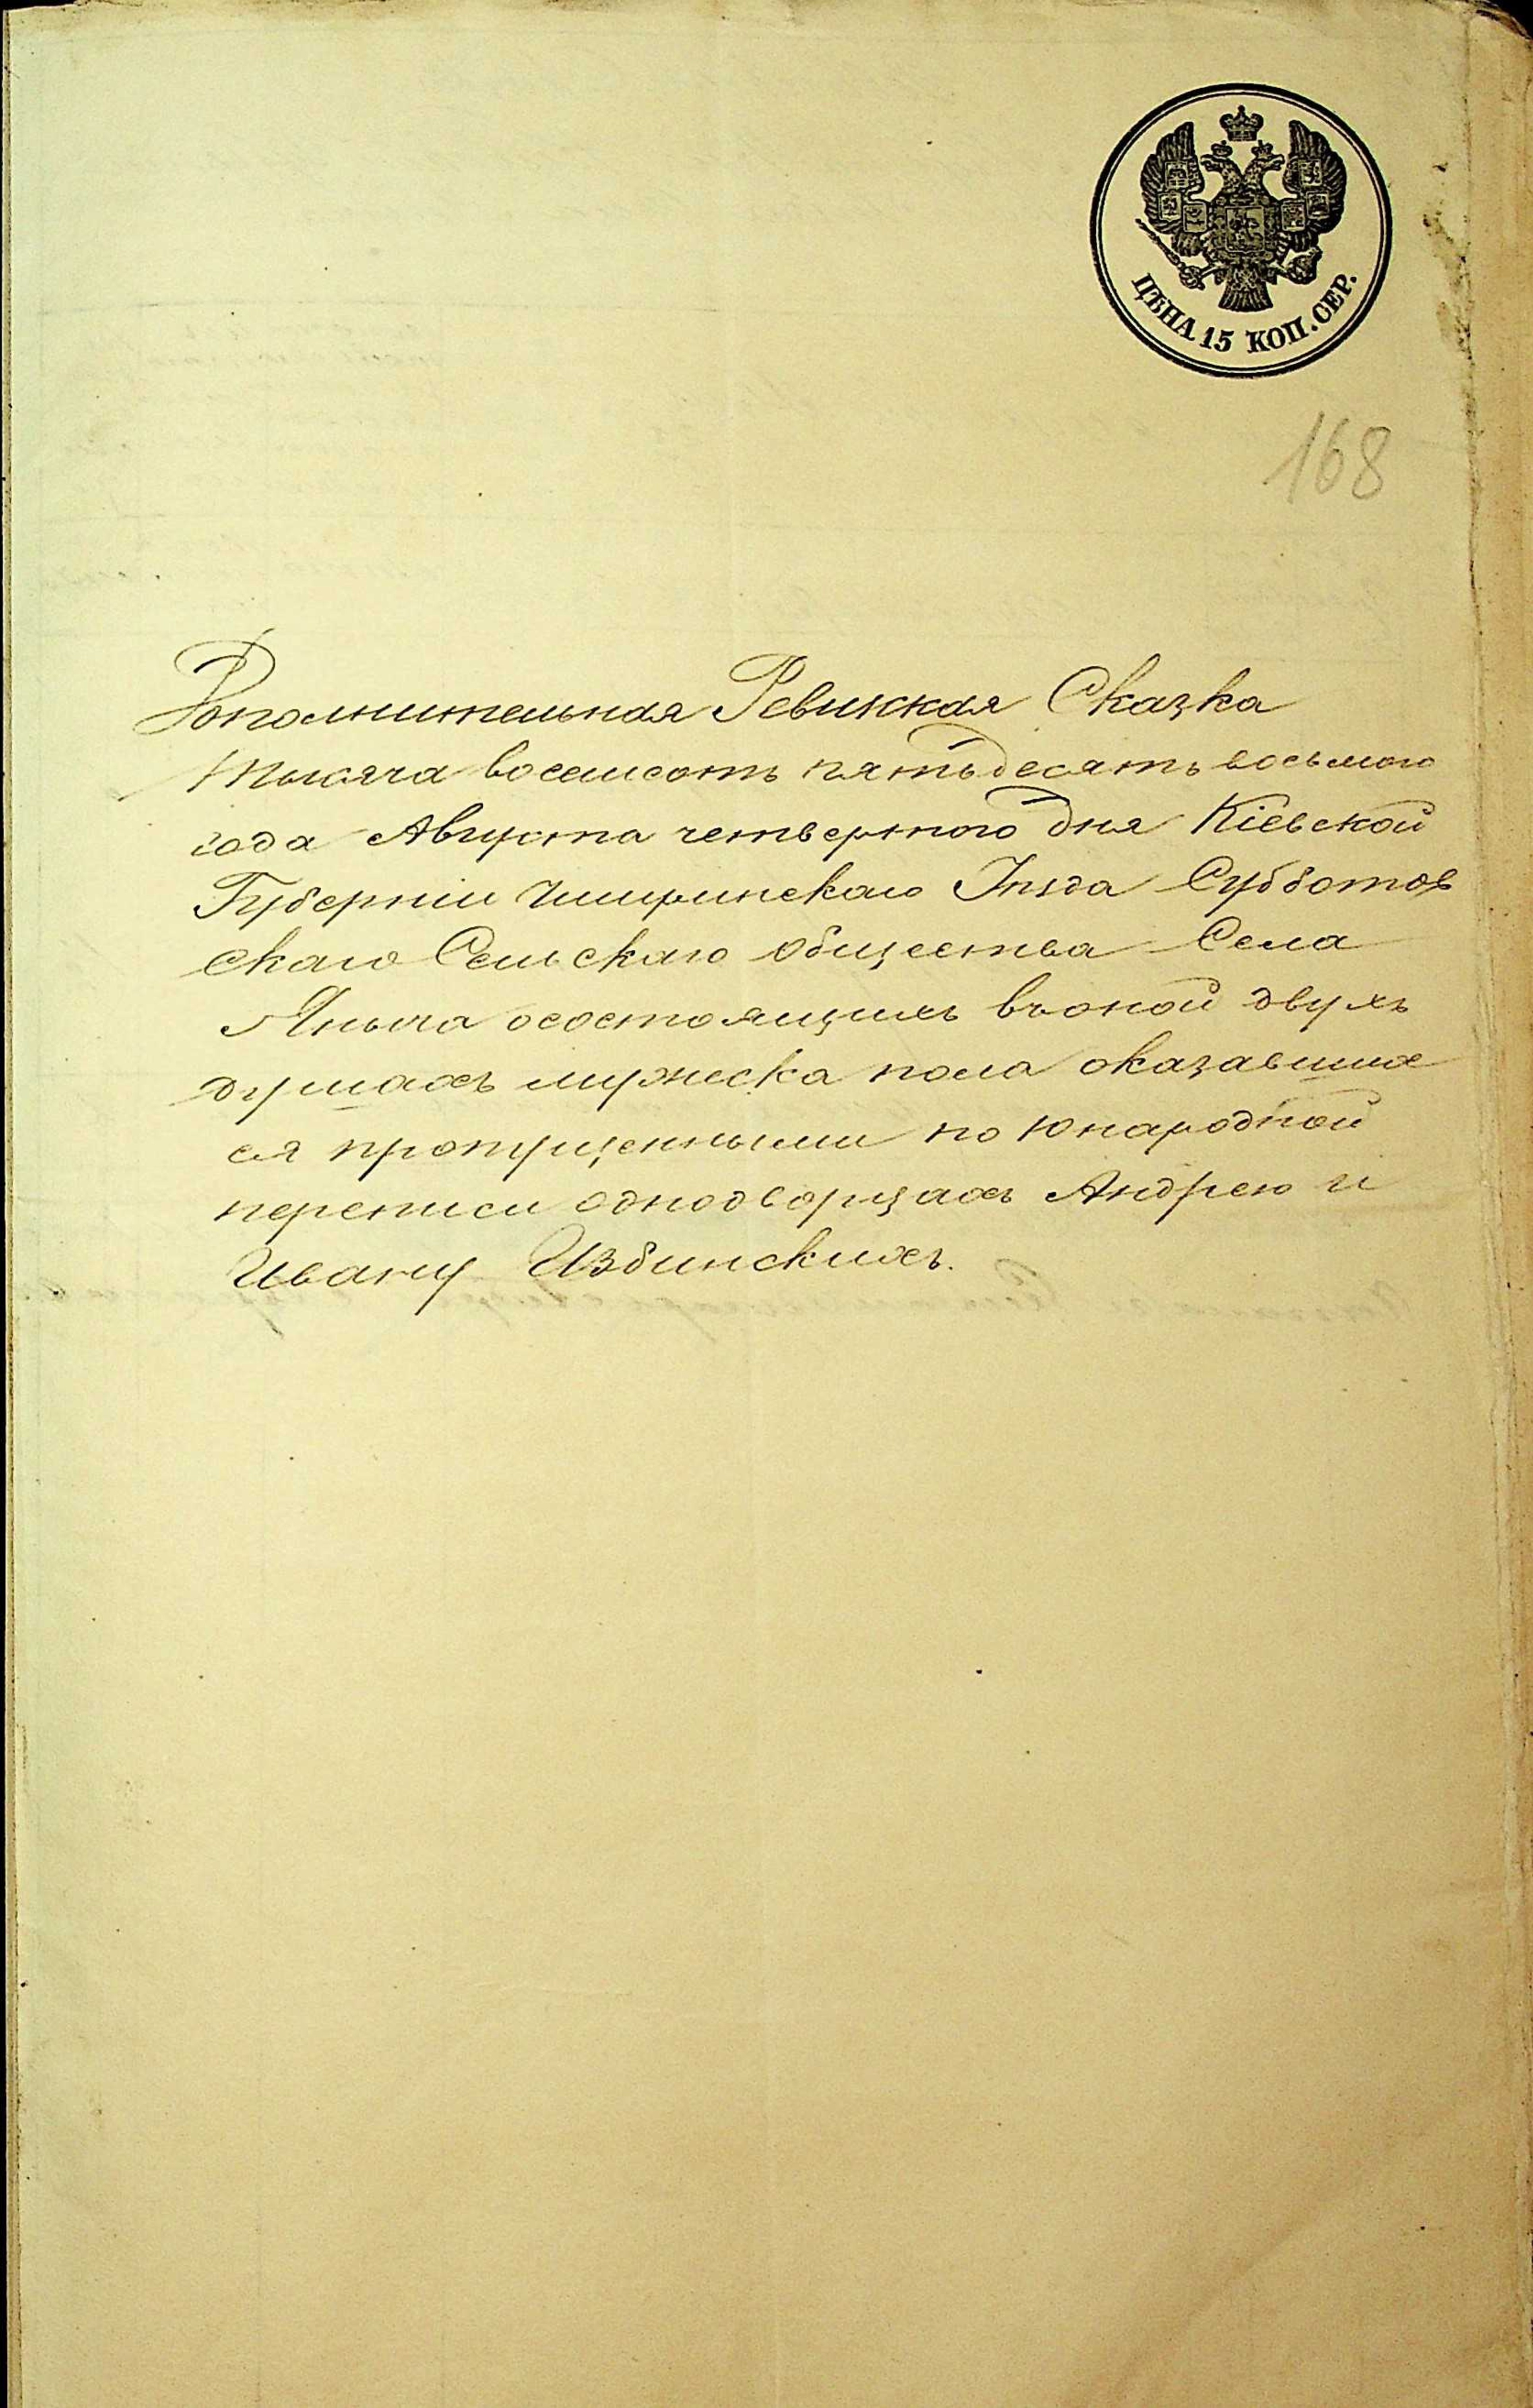 ЦѢНА 15 КОП. СЕР.
168
Дополнительная Ревижская Сказка
Тысяча восемьсотъ пятьдесятъ восьмого
года Августа четвертого дня Кіевской
Губерніи Чигиринскаго Уѣзда Субботов
скаго Сельскаго Общества Села
Яныча осостоящихъ въоной двухъ
душахъ мужеска пола оказавших
ся пропущенными по 10 народной
переписи однодворцахъ Андрею и
Ивану Избинскихъ.